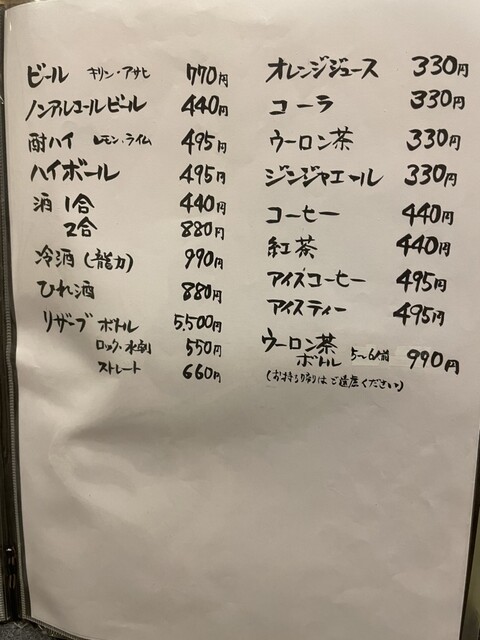 ビール キリン・アサヒ 770円
ノンアルコールビール 440円
酎ハイ レモン・ライム 495円
ハイボール 495円
酒 1合 440円
2合 880円
冷酒(龍力) 990円
ひれ酒 880円
リザーブ ボトル 5,500円
ロック・水割 550円
ストレート 660円
オレンジジュース 330円
コーラ 330円
ウーロン茶 330円
ジンジャエール 330円
コーヒー 440円
紅茶 440円
アイスコーヒー 495円
アイスティー 495円
ウーロン茶
ボトル 5〜6人前 990円
(お持ち帰りはご遠慮ください)